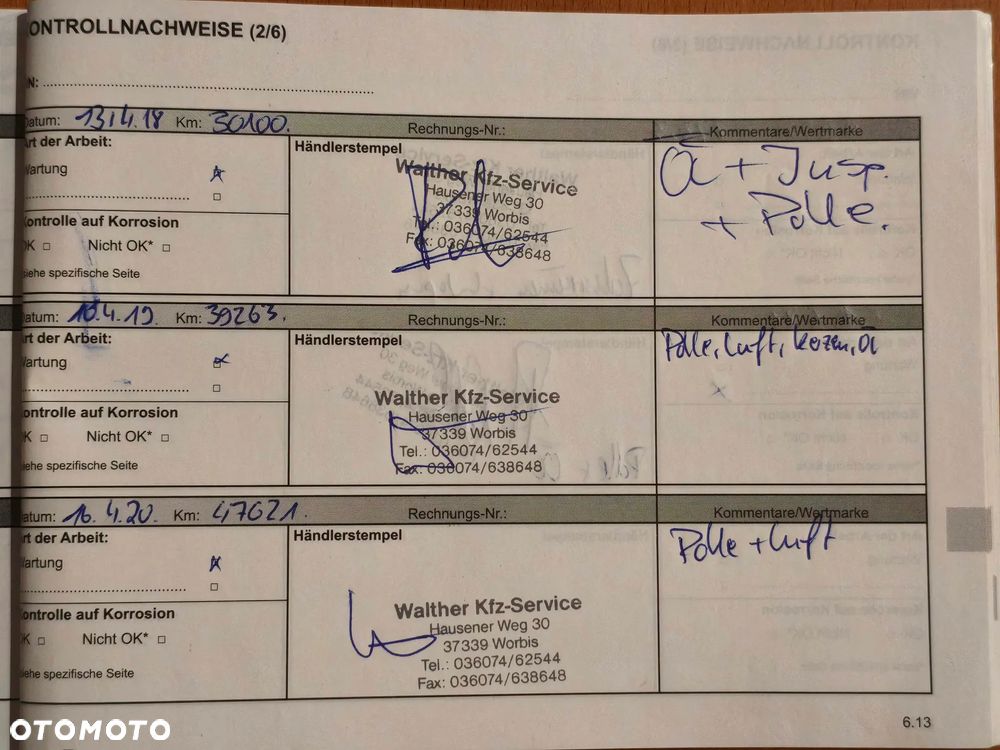 ONTROLLNACHWEISE (2/6)
N:
Datum: 13.4.18 Km: 30100. Rechnungs-Nr.: Kommentare/Wertmarke
rt der Arbeit: Händlerstempel
artung
Walther Kfz-Service
Hausener Weg 30
37339 Worbis
Tel.: 036074/62544
Fax: 036074/638648
Ö + Insp.
+ Polle.
ontrolle auf Korrosion
OK Nicht OK*
iehe spezifische Seite
atum: 10.4.19. Km: 39263. Rechnungs-Nr.: Kommentare/Wertmarke
rt der Arbeit: Händlerstempel
artung
Polle, Luft, kerzen, Ö
Walther Kfz-Service
Hausener Weg 30
37339 Worbis
Tel.: 036074/62544
Fax: 036074/638648
ontrolle auf Korrosion
K Nicht OK*
iehe spezifische Seite
atum: 16.4.20. Km: 47621. Rechnungs-Nr.: Kommentare/Wertmarke
rt der Arbeit: Händlerstempel
artung
Polle + Luft
Walther Kfz-Service
Hausener Weg 30
37339 Worbis
Tel.: 036074/62544
Fax: 036074/638648
ontrolle auf Korrosion
K Nicht OK*
iehe spezifische Seite
6.13
OTOMOTO